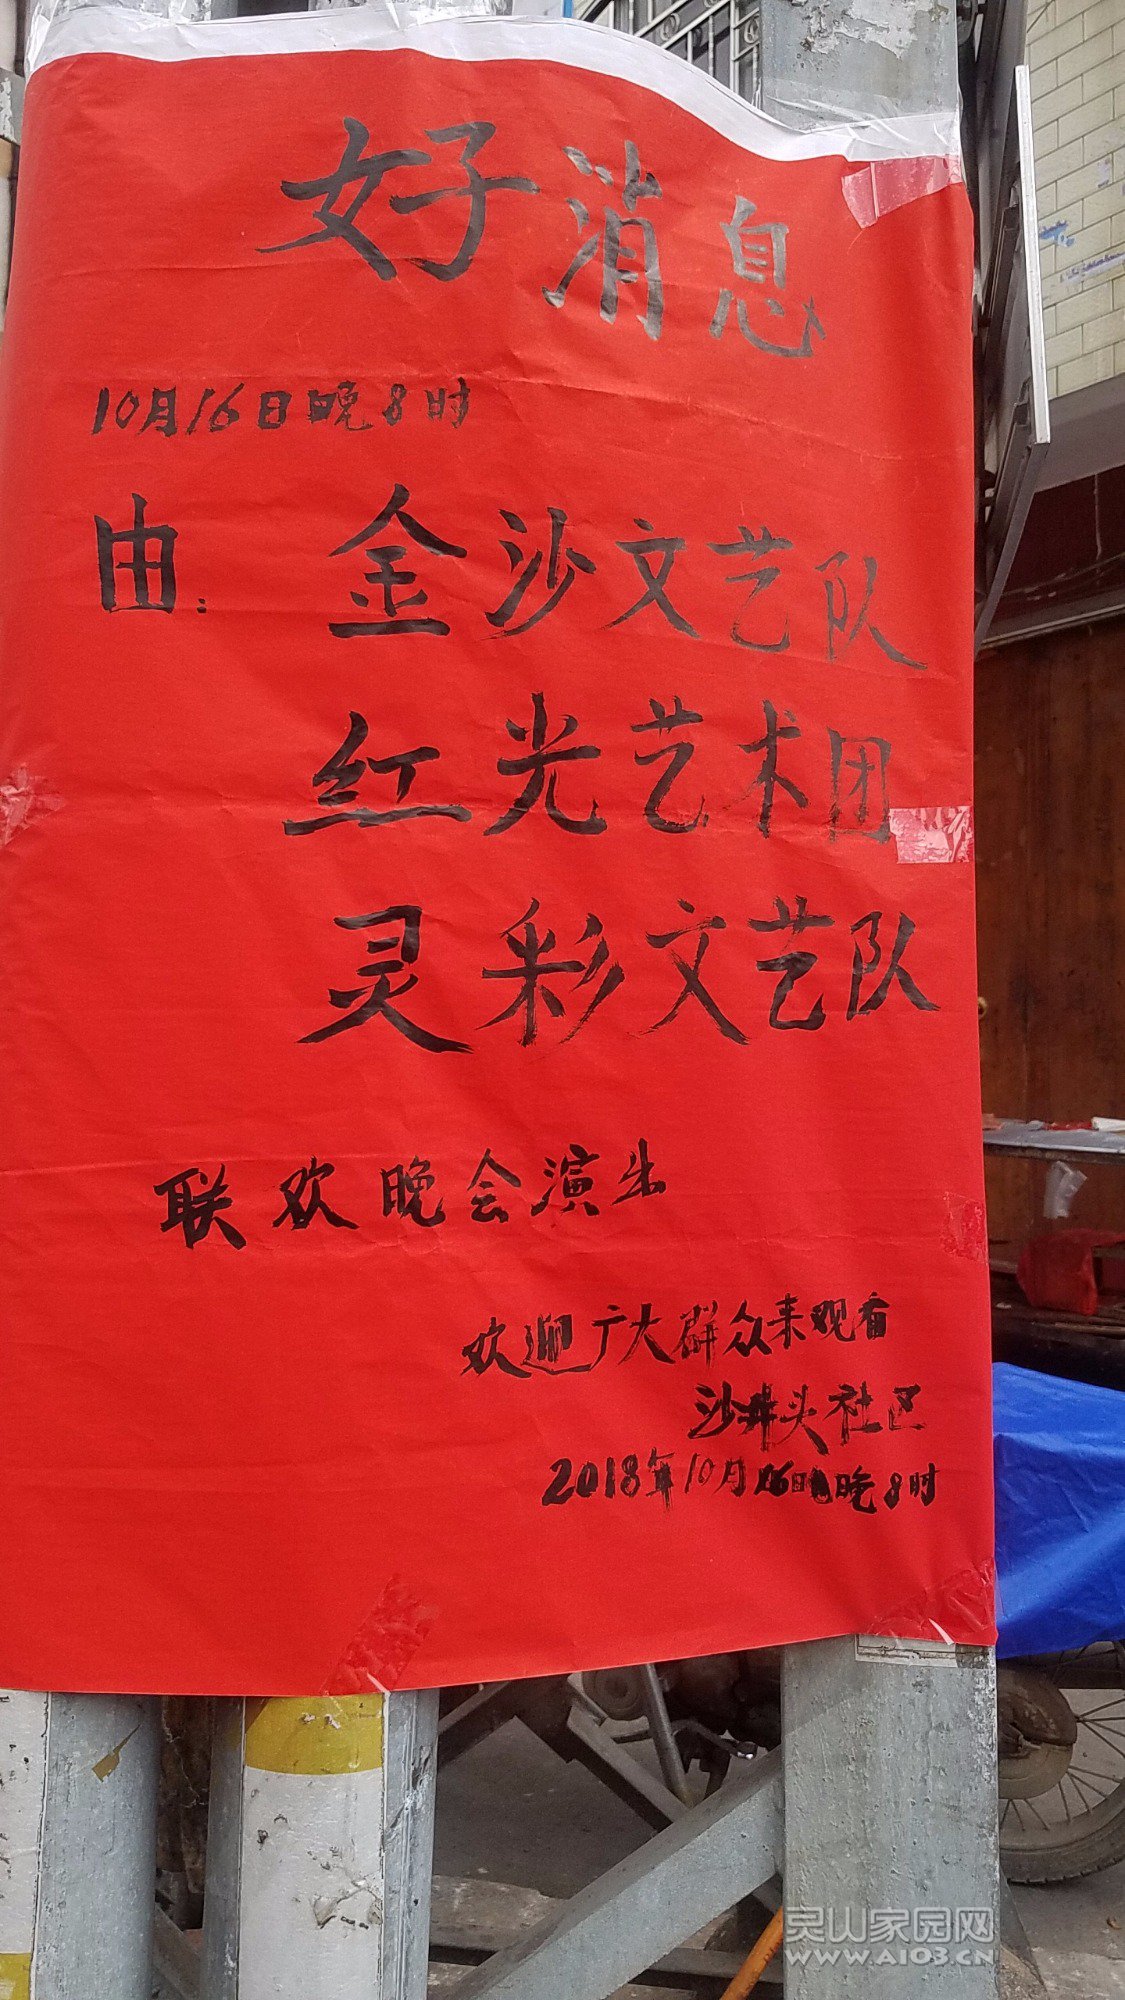 好消息
10月16日晚8时
由:金沙文艺队
红光艺术团
灵彩文艺队
联欢晚会演出
欢迎广大群众来观看
沙井头社区
2018年10月16日晚8时
灵山家园网
WWW.A103.CN